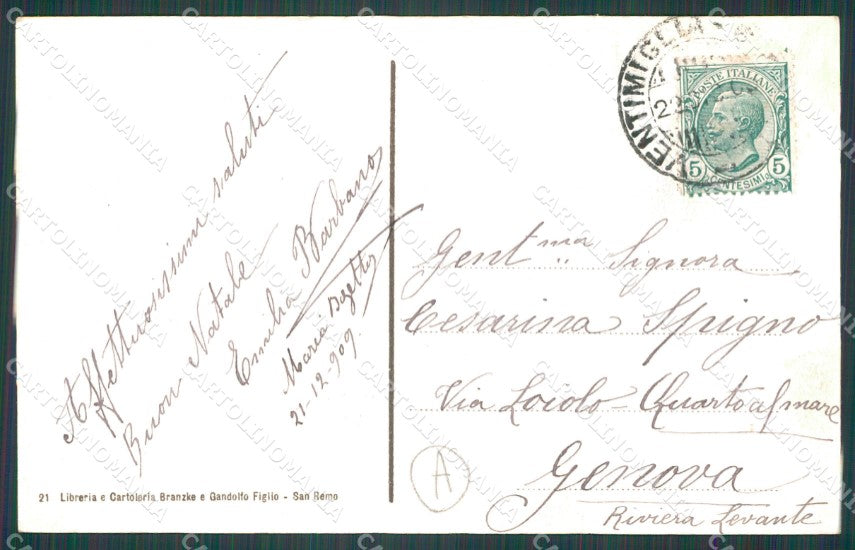 Affettuosissimi saluti
Buon Natale
Emilia Barbano
Maria
21-12-909.
21 Libreria e Cartoleria Branzke e Gandolfo Figlio - San Remo
VENTIMIGLIA
POSTE ITALIANE
5 CENTESIMI 5
Gent.ma Signora
Cesarina Spigno
Via Loiolo - Quarto al mare
Genova
Riviera Levante
A
CARTOLINOMANIA